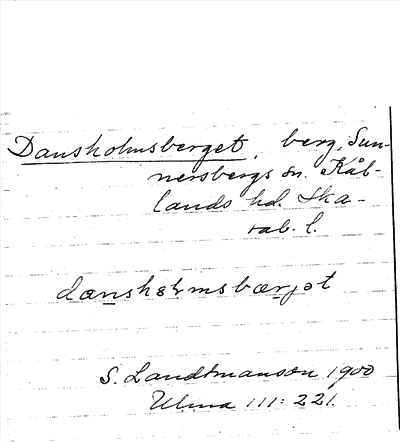 Dansholmsberget, berg, Sun-
nersbergs sn. Kål-
lands hd. Ska-
rab. l.
S. Landtmanson 1900
Ulma 111: 221.